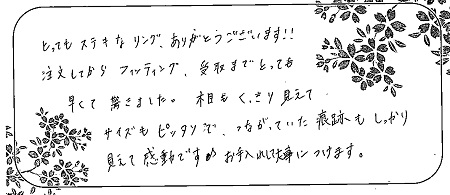 とってもステキなリング、ありがとうございます!!
注文してから フィッティング、受取までとっても
早くて驚きました。 相もくっきり見えて
サイズもピッタリで、つながっていた痕跡もしっかり
見えて感動です お手入れして大事につけます。